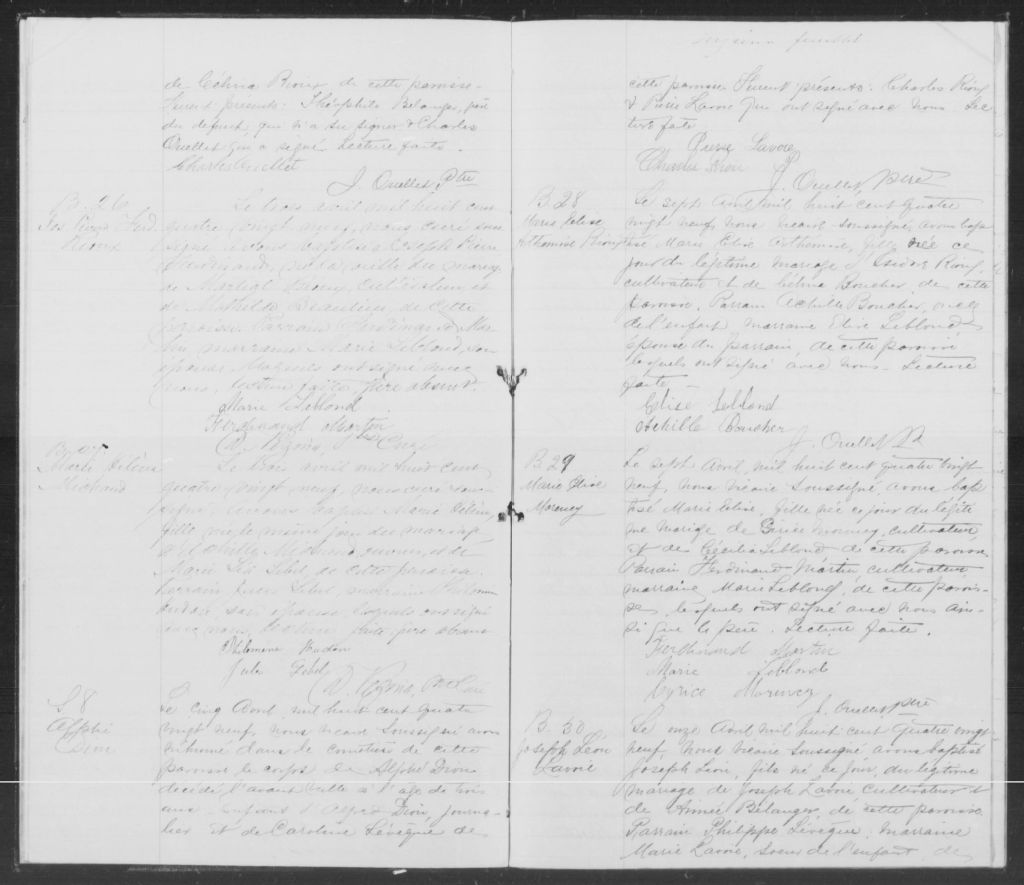 de Célina Rioux de cette paroisse.
Furent présents: Théophile Belanger, père
du défunt, qui n'a su signer & Charles
Ouellet qui a signé. Lecture faite.
Charles Ouellet
J. Ouellet Ptre
B. 26
Jos Pierre Ferd.
Le trois avril mil huit cent
quatre vingt neuf, nous curé sous
signé avons baptisé Joseph Pierre
Ferdinand, né la veille du mariage
de Martial cultivateur et
de Mathilde Beaulieu de cette
paroisse. Parrain Ferdinand Mar
tin marraine Marie Leblond, son
épouse, lesquels ont signé avec
nous, lecture faite, père absent.
Marie Leblond
Ferdinand Martin
D. Vézina Ptre Curé
B. 27
Marie Hélène
Michaud
Le trois avril mil huit cent
quatre vingt neuf, nous curé sous
signé avons baptisé Marie Hélène,
fille née même jour du mariage
Michaud, et de
Marie Lebel, de cette paroisse.
Parrain Jules Lebel, marraine Philomène
son épouse, lesquels ont signé
avec nous, lecture faite, père absent
Philomene Hudon
Jules Lebel
D. Vézina, Ptre Curé
S 8
Alphé
Dion
Le cinq Avril, mil huit cent quatre
vingt neuf, nous vicaire soussigné avons
inhumé dans le cimetière de cette
paroisse le corps de Alphé Dion
décédé l'avant veille à l'age de trois
ans, enfant d'Alfred Dion, journa-
lier et de Caroline Lévêque de
feuillet
cette paroisse Furent présents: Charles Rioux
& Pierre Lavoie qui ont signé avec nous Lec
ture faite
Pierre Lavoie
Charles Rioux
J. Ouellet, Ptre
B 28
Marie Elise
Athémise Rioux
Le sept Avril mil huit cent quatre
vingt neuf, nous vicaire soussigné, avons bap
tisé Marie Elise Athémise, fille née ce
jour du légitime mariage d'Isidore Rioux,
cultivateur et de Célina Boucher de cette
paroisse. Parrain Achille Boucher, oncle
de l'enfant, marraine Elise Leblond
épouse du parrain, de cette paroisse
lesquels ont signé avec nous. Lecture
faite
Elise Leblond
Achille Boucher
J. Ouellet Ptre
B. 29
Marie Elise
Morency
Le sept Avril, mil huit cent quatre vingt
neuf, nous vicaire soussigné, avons bap
tisé Marie Elise, fille née ce jour du légiti
me mariage de Cyrice Morency, cultivateur,
et de Cécilia Leblond de cette paroisse
Parrain Ferdinand Martin cultivateur
marraine Marie Leblond, de cette parois-
se, lesquels ont signé avec nous ain-
si que le père. Lecture faite.
Ferdinand Martin
Marie Leblond
Cyrice Morency
J. Ouellet Ptre
B. 30
Joseph Léon
Lavoie
Le onze Avril mil huit cent quatre vingt
neuf, nous vicaire soussigné avons baptisé
Joseph Léon, fils né ce jour, du légitime
mariage de Joseph Lavoie cultivateur et
de Aimée Bélanger de cette paroisse
Parrain Philippe Lévêque, marraine
Marie Lavoie, soeur de l'enfant, de